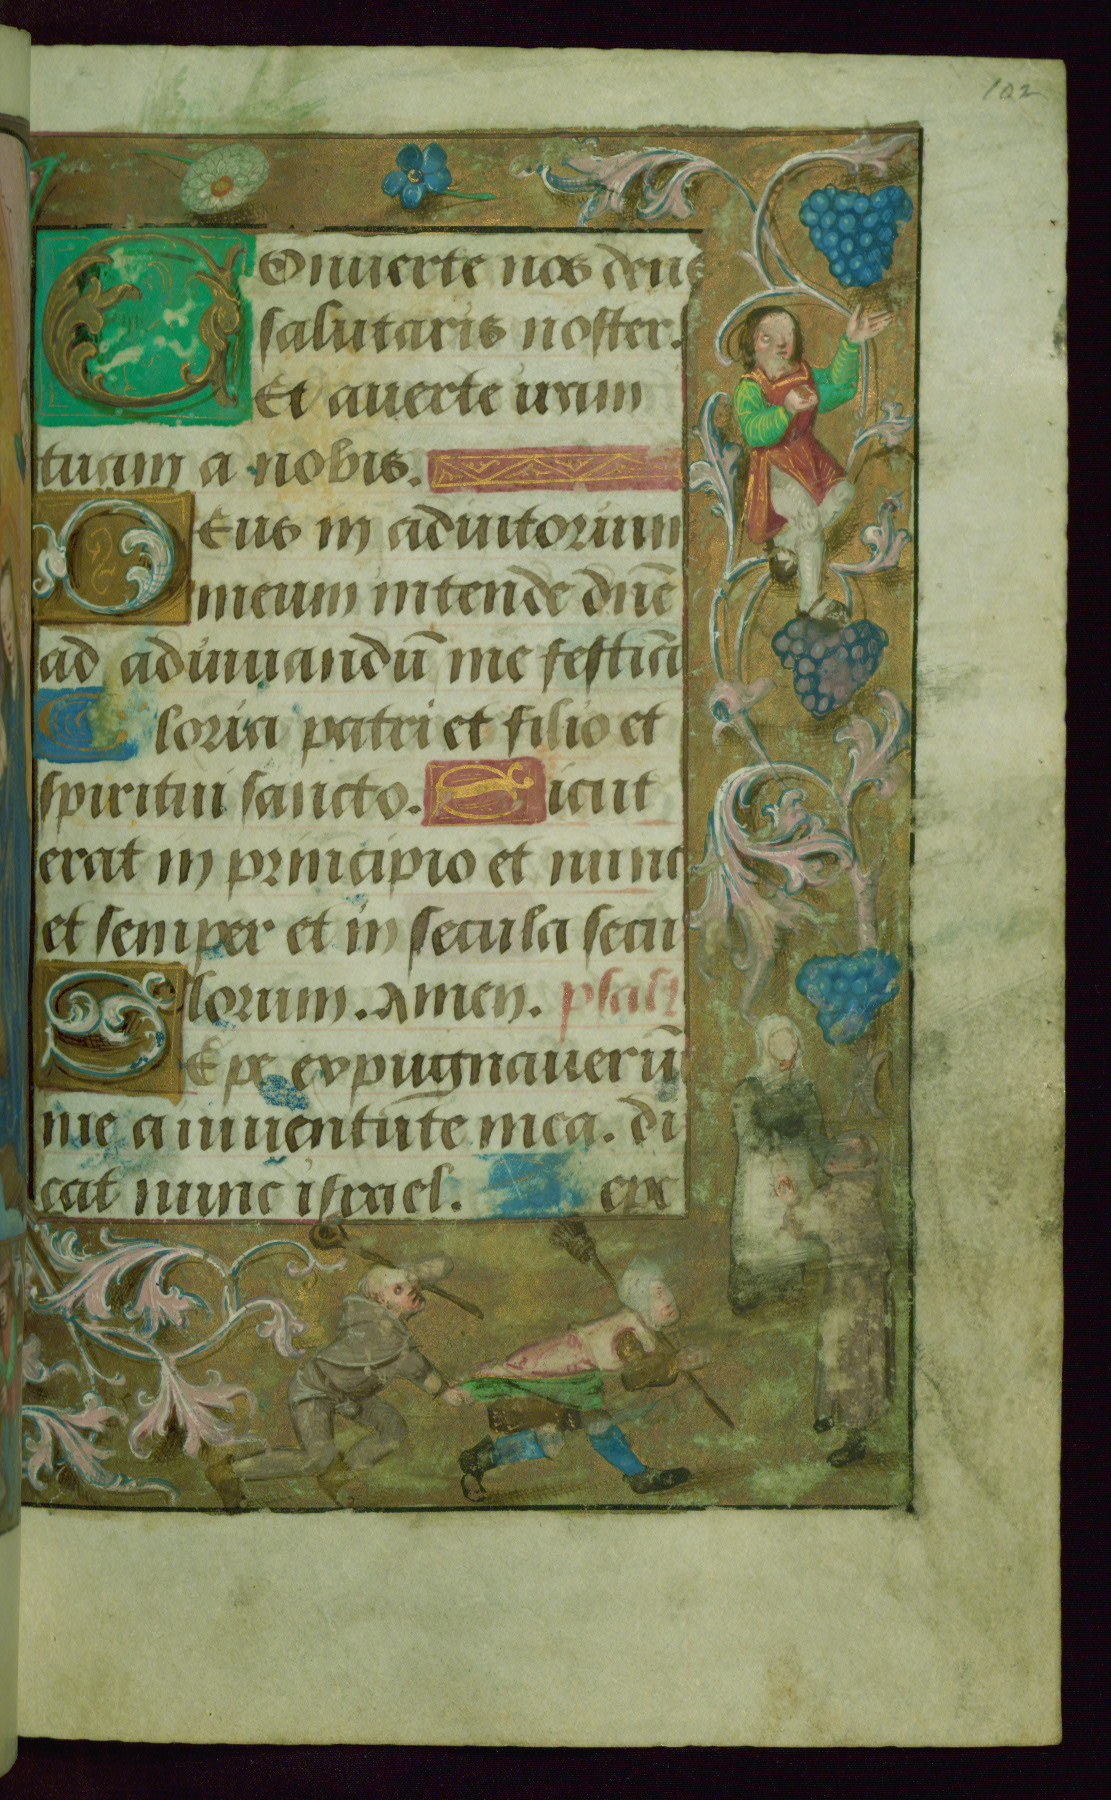 102
Conuerte nos deus
salutaris noster.
Et auerte iram
tuam a nobis.
Deus in adiutorium
meum intende dn̄e
ad adiuuandū me festīa
Gloria patri et filio et
spiritui sancto. Sicut
erat in principio et nunc
et semper et in secula secu
lorum. Amen. psal̄
Sepe expugnauerūt
me a iuuentute mea. di
cat nunc israel. Sepe